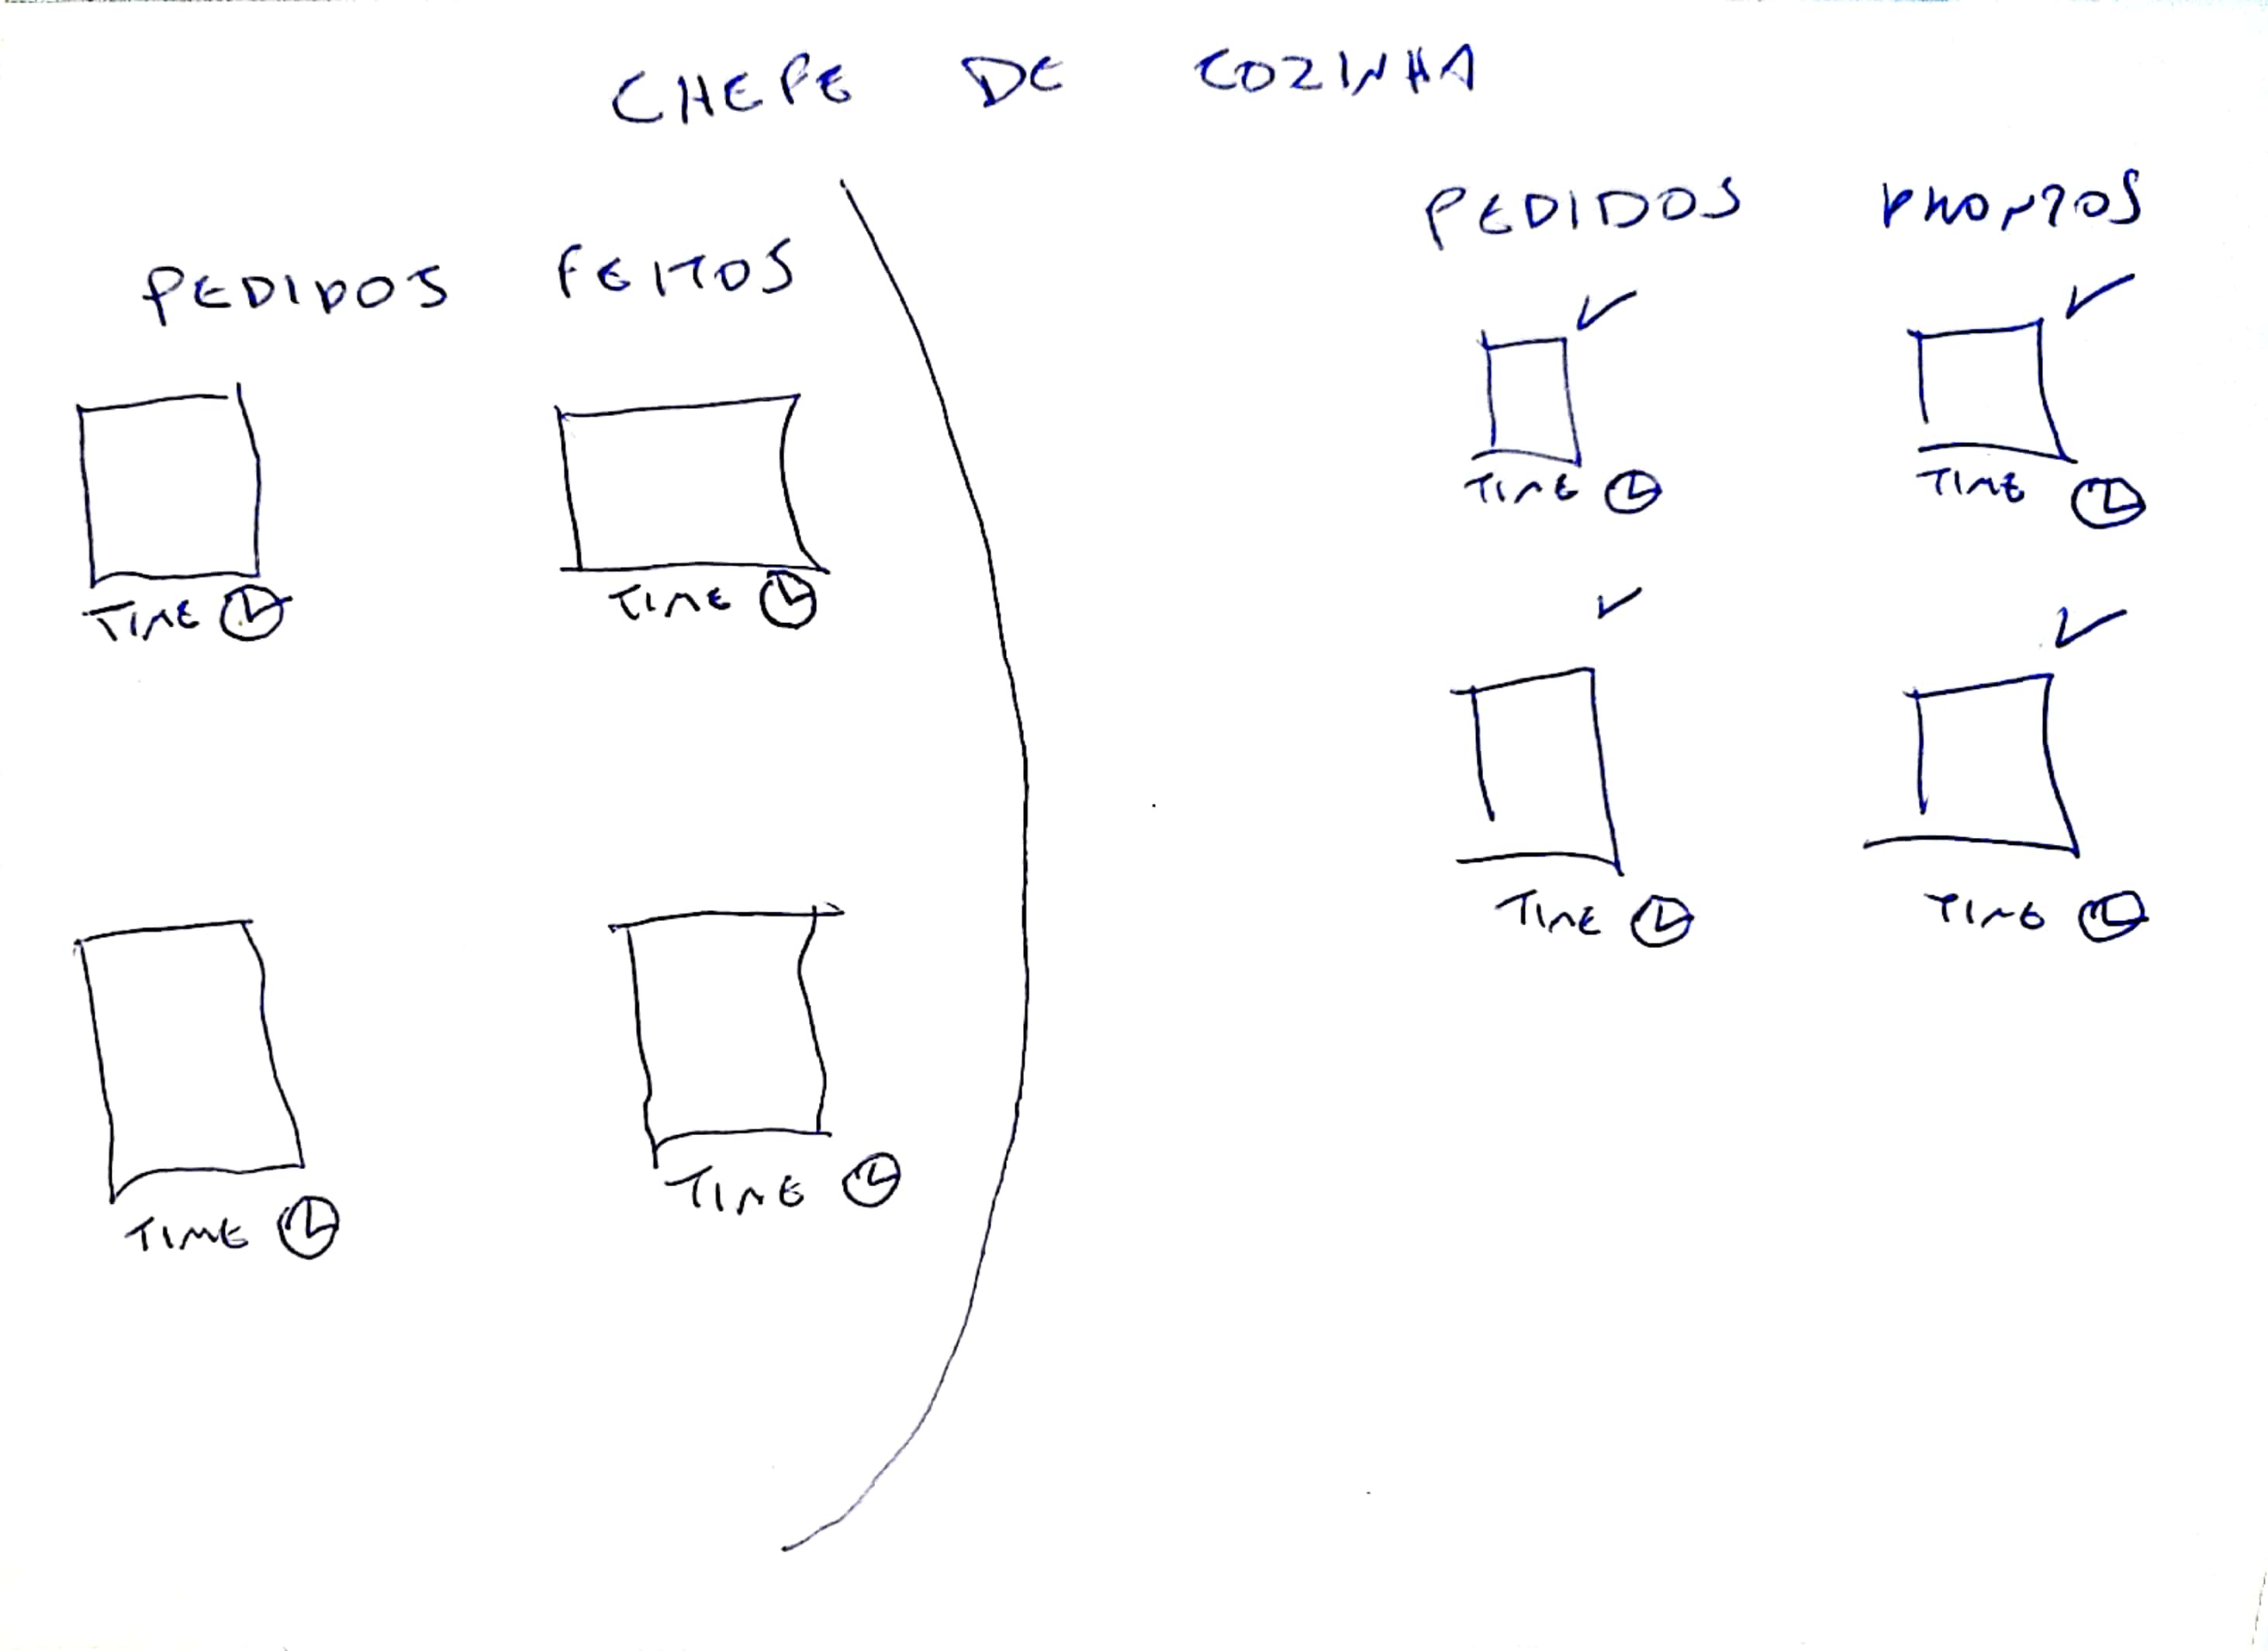 CHEFE DE COZINHA
PEDIDOS FEITOS
TIME
TIME
TIME
TIME
PEDIDOS PRONTOS
TIME
TIME
TIME
TIME